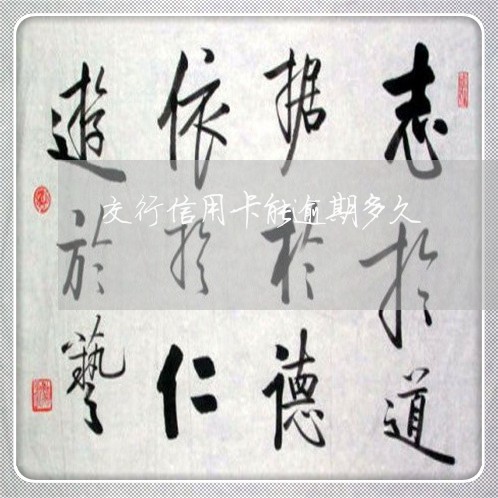 志於道
据於德
依於仁
遊於藝
交行信用卡能逾期多久